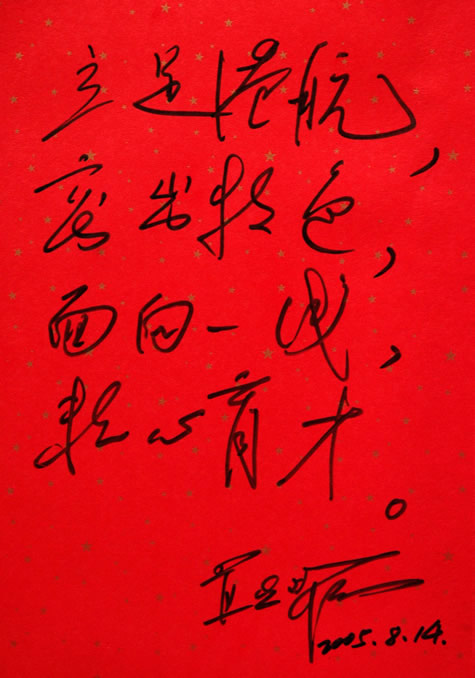 立足港航，
突出特色，
面向一线，
心育才。
2005.8.14.